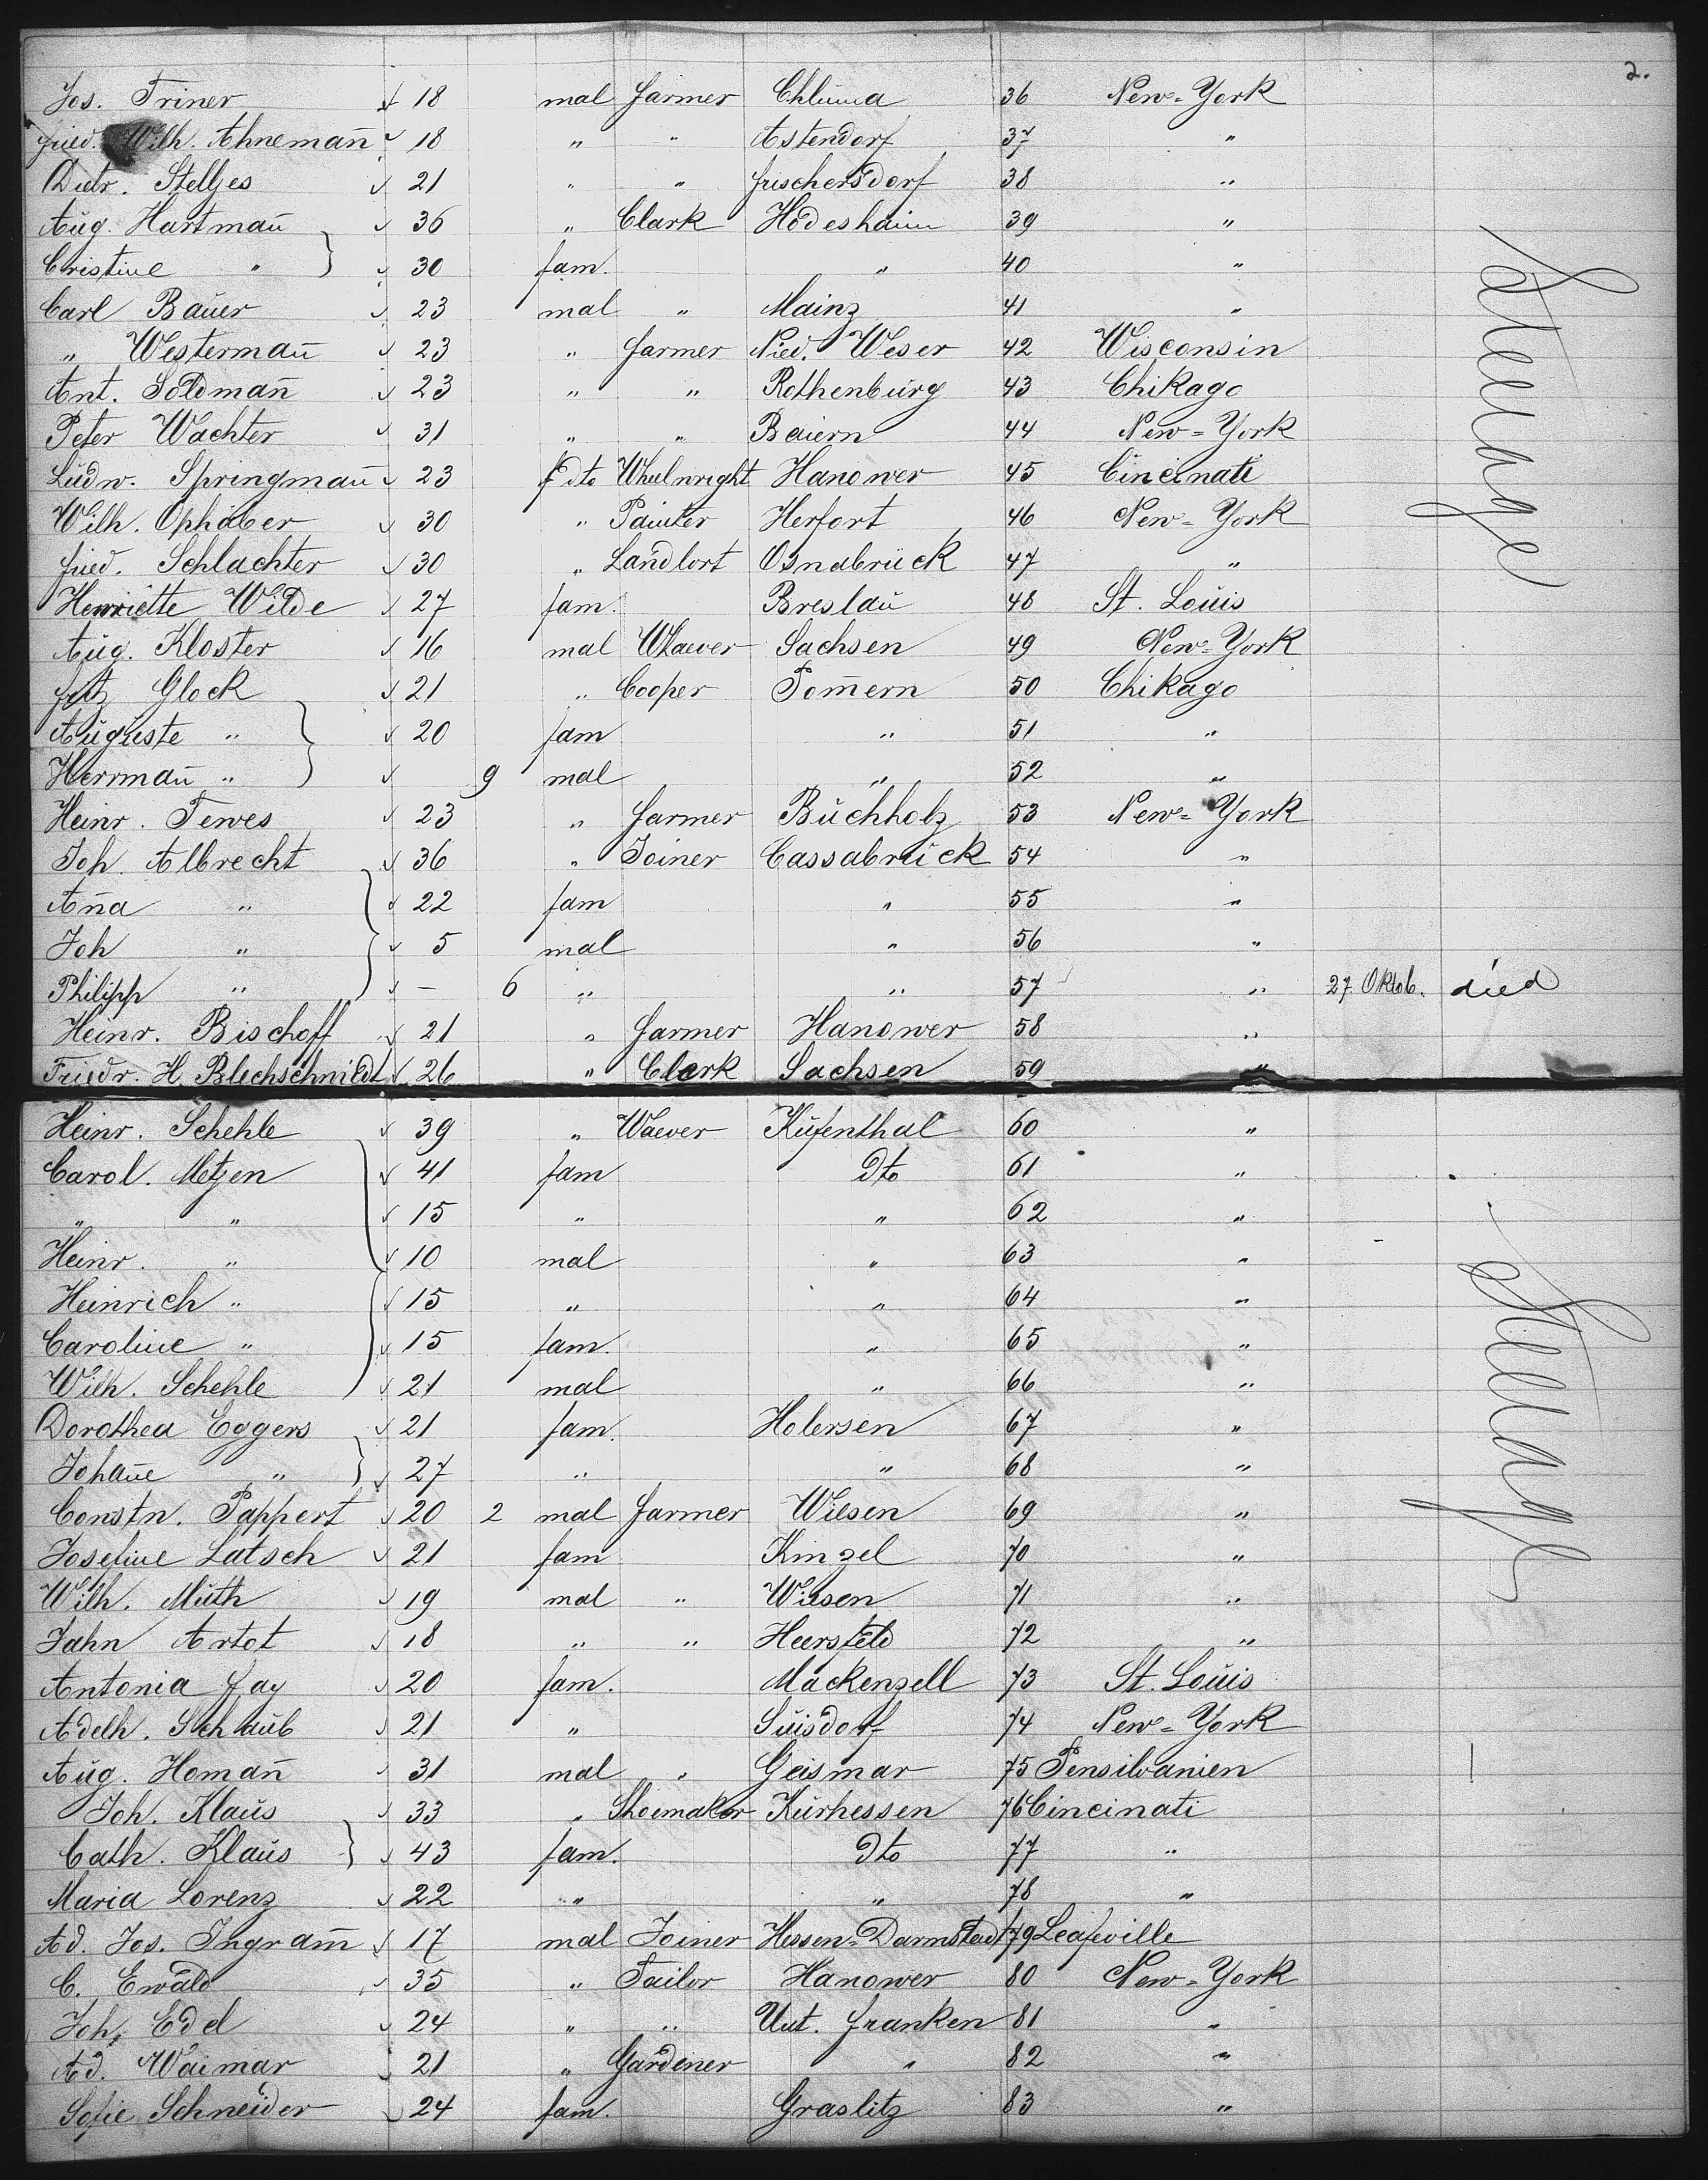 2.
Jos. Triner 18 mal farmer Chluma 36 New-York
fried. Wilh. Ahnemañ 18 " " Astendorf 37 "
Dietr. Stelljes 21 " " frischersdorf 38 "
Aug. Hartmañ 36 " Clark Hodeshaim 39 "
Cristine " 30 fam. " 40 "
Carl Bauer 23 mal " Mainz 41 "
" Westermañ 23 " farmer Nied. Weser 42 Wisconsin
Ant. Soldmañ 23 " " Rothenburg 43 Chikago
Peter Wachter 31 " " Baiern 44 New-York
Ludw. Springmañ 23 dto Whelwright Hanower 45 Cincinati
Wilh. Ophaber 30 " Painter Herfort 46 New-York
fried. Schlachter 30 " Landlort Osnabrück 47 "
Henriette Wilde 27 fam. Breslau 48 St. Louis
Aug. Kloster 16 mal Whaever Sachsen 49 New-York
fritz Glock 21 " Cooper Pom̄ern 50 Chikago
Auguste " 20 fam " 51 "
Herrmañ " 9 mal " 52 "
Heinr. Tewes 23 " farmer Buchholz 53 New-York
Joh. Albrecht 36 " Joiner Cassabruck 54 "
Aña " 22 fam " 55 "
Joh " 5 mal " 56 "
Philipp " — 6 " " 57 " 27. Oktob. died
Heinr. Bischoff 21 " farmer Hanower 58 "
Friedr. H. Blechschmidt 26 " Clerk Sachsen 59 "
Steerage
Heinr. Schehle 39 " Waever Küfenthal 60 "
Carol. Metzen 41 fam dto 61 "
" " 15 " " 62 "
Heinr. " 10 mal " 63 "
Heinrich " 15 " " 64 "
Caroline " 15 fam. " 65 "
Wilh. Schehle 21 mal " 66 "
Dorothea Eggers 21 fam. Holersen 67 "
Johañe " 27 " " 68 "
Constn. Pappert 20 2 mal farmer Wiesen 69 "
Josefine Latsch 21 fam Kinzel 70 "
Wilh. Muth 19 mal " Wiesen 71 "
Jahn Artot 18 " " Heersfeld 72 "
Antonia fay 20 fam. Mackenzell 73 St. Louis
Adelh. Schaub 21 " Suisdorf 74 New-York
Aug. Homañ 31 mal " Geismar 75 Pensilvanien
Joh. Klaus 33 " Shoemaker Kurhessen 76 Cincinati
Cath. Klaus 43 fam. dto 77 "
Maria Lorenz 22 " " 78 "
Ad. Jos. Ingram̄ 17 mal Joiner Hessen-Darmstadt 79 Leafeville
C. Ewald 35 " Tailor Hanower 80 New-York
Joh. Edel 24 " " Unt. franken 81 "
Ad. Waimar 21 " Gardener " 82 "
Sofie Schneider 24 fam. Graslitz 83 "
Steerage